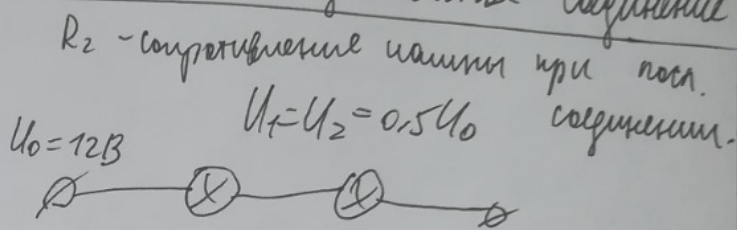 соединение
R₂ - сопротивление лампы при посл. соединении.
U₁=U₂=0,5U₀
U₀=12В